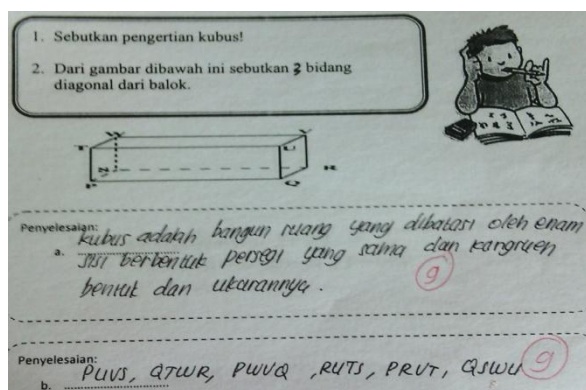 1. Sebutkan pengertian kubus!
2. Dari gambar dibawah ini sebutkan 3 bidang
diagonal dari balok.
Penyelesaian:
a. kubus adalah bangun ruang yang dibatasi oleh enam
sisi berbentuk persegi yang sama dan kongruen
bentuk dan ukurannya.
9
Penyelesaian:
b. PUVS, QTWR, PWVQ, RUTS, PRVT, QSWU
9